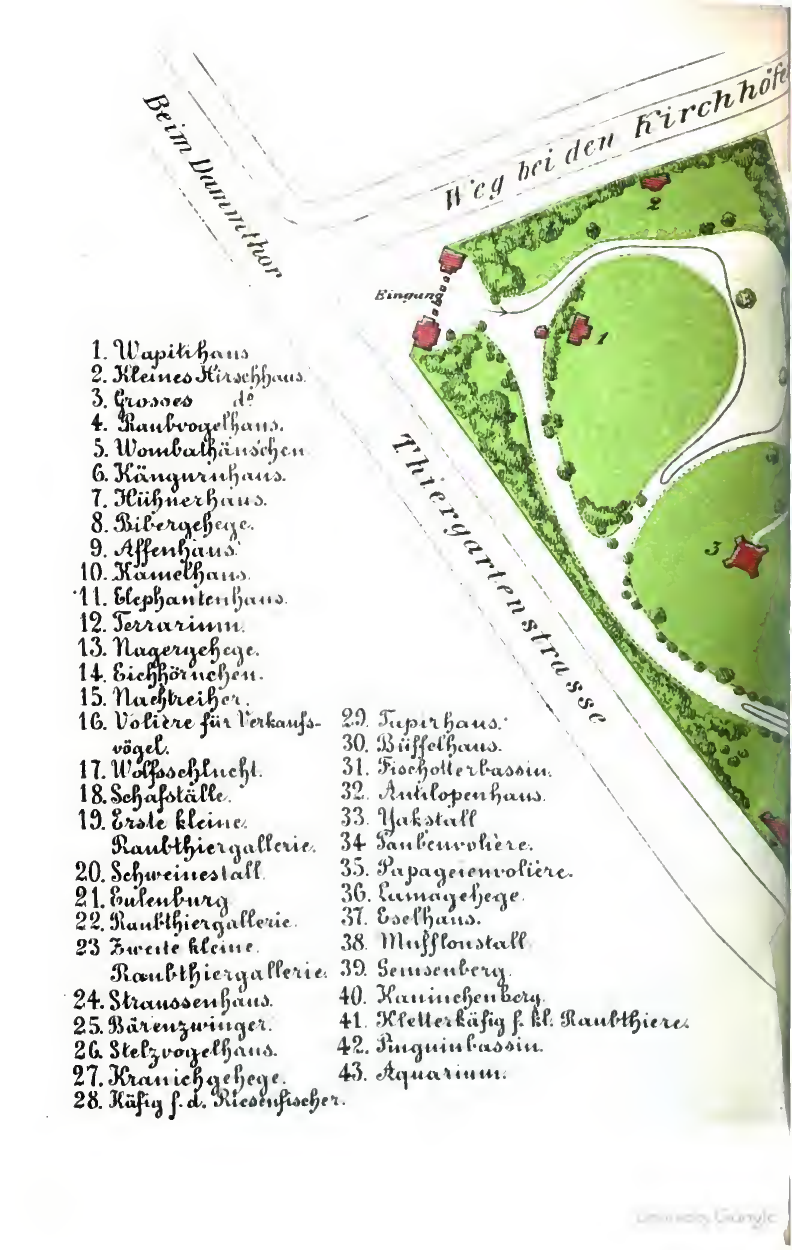 Beim Dammthor
Weg bei den Kirchhöfe
2
Eingang
1
Thiergartenstrasse
3
1. Wapitihaus
2. Kleines Hirschhaus.
3. Grosses do
4. Raubvogelhaus.
5. Wombathäuschen
6. Känguruhaus.
7. Hühnerhaus.
8. Bibergehege.
9. Affenhaus.
10. Kamelhaus.
11. Elephantenhaus.
12. Terrarium.
13. Nagergehege.
14. Eichhörnchen.
15. Nachtreiher.
16. Volière für Verkaufs-
vögel.
17. Wolfsschlucht.
18. Schafställe.
19. Erste kleine
Raubthiergallerie.
20. Schweinestall
21. Eulenburg
22. Raubthiergallerie.
23 Zweite kleine
Raubthiergallerie.
24. Straussenhaus.
25. Bärenzwinger.
26. Stelzvogelhaus.
27. Kranichgehege.
28. Käfig f. d. Riesenfischer.
29. Tapirhaus.
30. Büffelhaus.
31. Fischotterbassin.
32. Antilopenhaus.
33. Yakstall
34 Taubenvolière.
35. Papageienvolière.
36. Lamagehege.
37. Eselhaus.
38. Mufflonstall
39. Gemsenberg.
40. Kaninchenberg.
41. Kletterkäfig f. kl. Raubthiere.
42. Pinguinbassin.
43. Aquarium.
Google